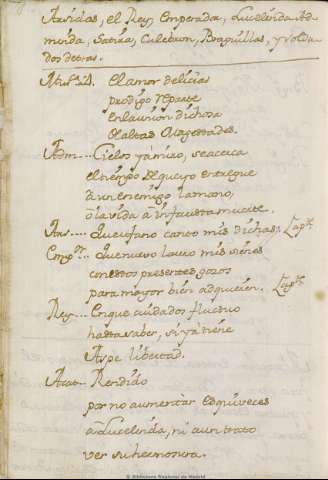 el Rey, Emperador, Lucelinda, Ad-
minda, Satira, Culebron, Braguillas, y Solda-
dos detras.
Mus.ª 24. El amor delicias
prodigo reparte
en la union dichosa
de altas Magestades.
Adm.... Cielos ya miro, se acerca
el tiempo de que yo entregue
à un enemigo tamaño,
ò la vida à infausta muerte.
que ufano canto mis dichas. Ap.te
Emp.or.. Que nuevo lauro mis sienes
con estos presentes gozos
para mayor bien adquieren. Ap.te
Rey.... En que cuidados fluctuo
hasta saber, si ya tiene
libertad.
Rendido
por no aumentar esquiveces
à Lucelinda, ni aun trato
ver su hermosura.
© Biblioteca Nacional de Madrid